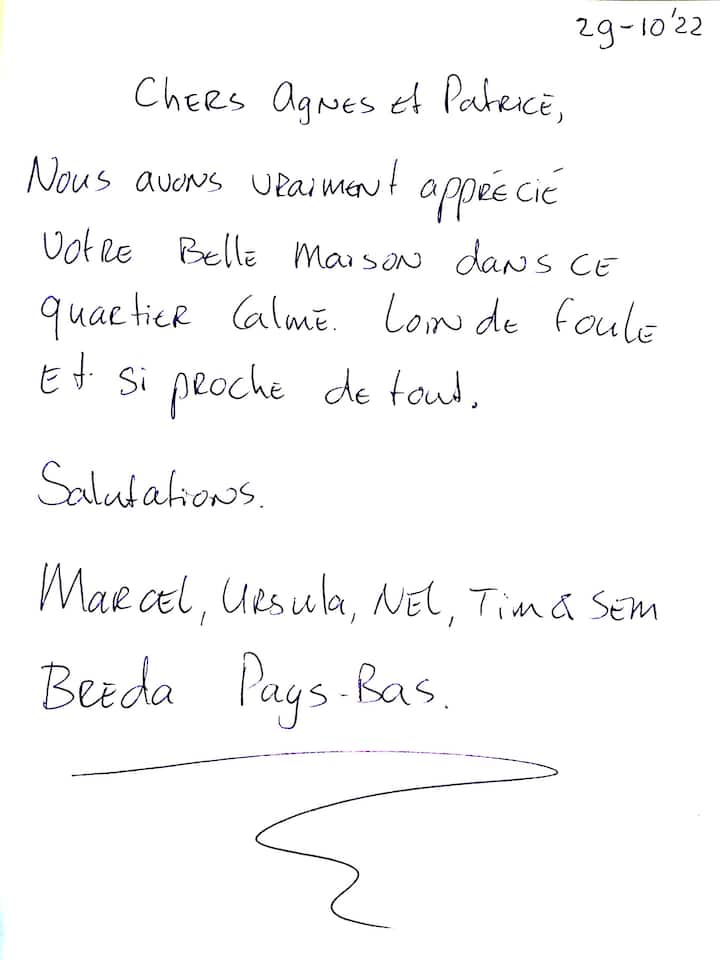 29-10'22
Chers Agnes et Patrice,
Nous avons vraiment apprécié
votre Belle maison dans ce
quartier Calme. Loin de foule
Et si proche de tout.
Salutations.
Marcel, Ursula, Nel, Tim & Sem
Breda Pays-Bas.